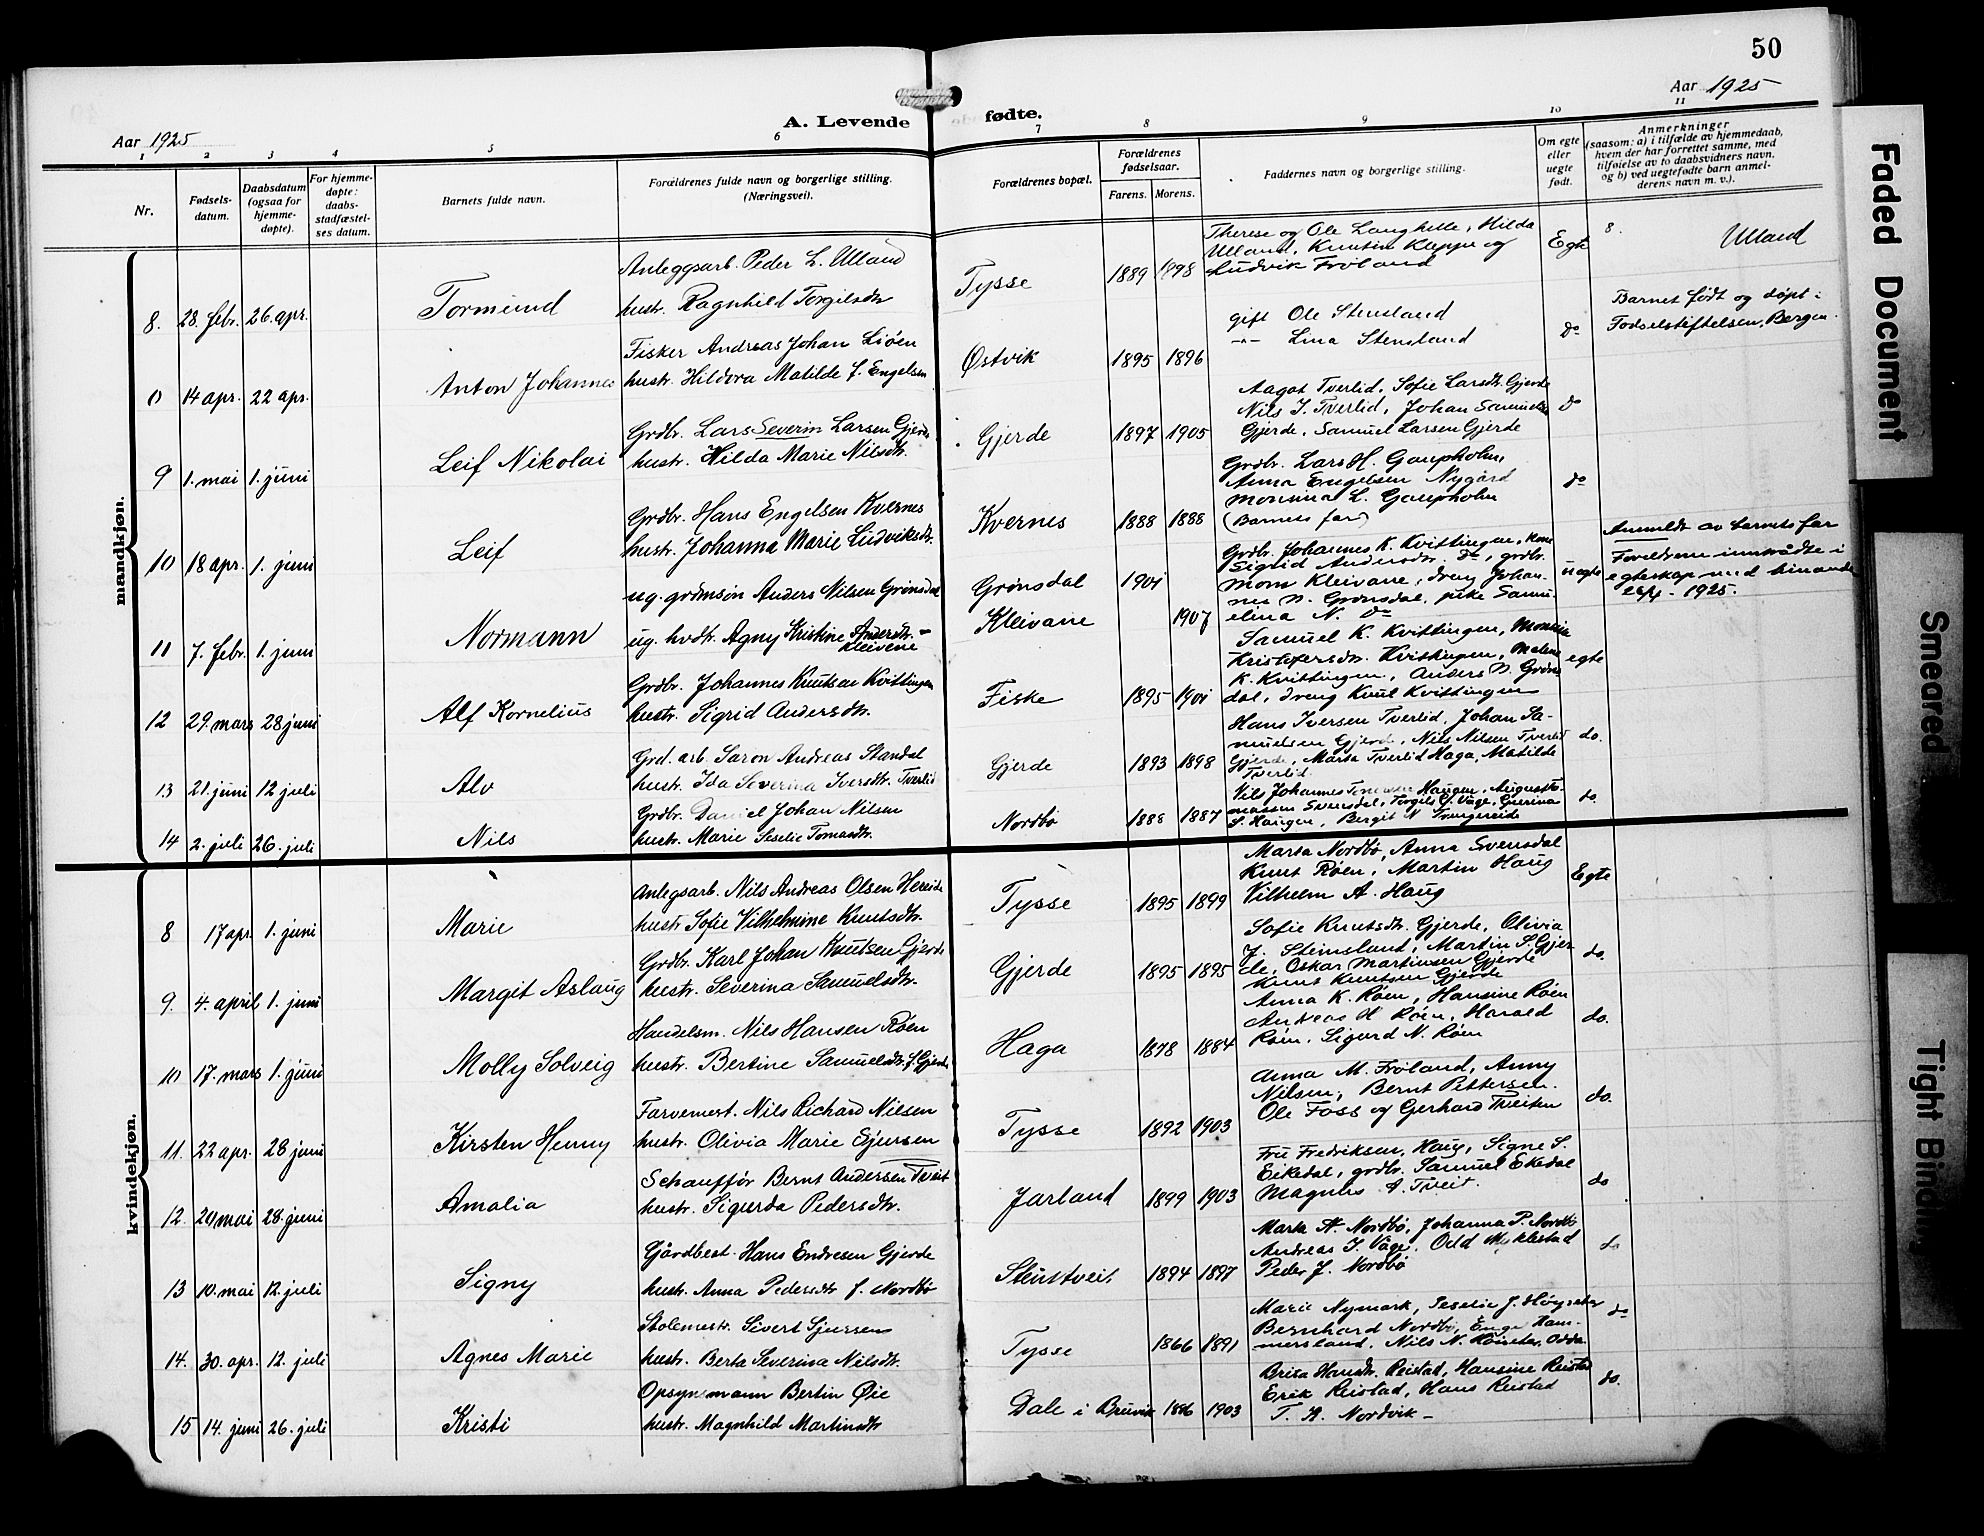 50
Aar 1925
A. Levende fødte.
Aar 1925
1 2 3 4 5 6 7 8 9 10 11
Nr.
Fødsels-
datum.
Daabsdatum
(ogsaa for
hjemme-
døpte).
For hjemme-
døpte:
daabs-
stadfæstel-
ses datum.
Barnets fulde navn.
Forældrenes fulde navn og borgerlige stilling.
(Næringsvei).
Forældrenes bopæl.
Forældrenes
fødselsaar.
Farens. Morens.
Faddernes navn og borgerlige stilling.
Om egte
eller
uegte
født.
Anmerkninger
(saasom: a) i tilfælde av hjemmedaab,
hvem der har forrettet samme, med
tilføielse av to daabsvidners navn,
og b) ved uegtefødte barn anmel-
derens navn m. v.).
mandkjøn.
8. 28. febr. 26. apr. Tormund
Anleggsarb. Peder L. Ulland
hustr. Ragnhild Torgilsdtr
Tysse 1889 1898
Therese og Ole Langhelle, Hilda
Ulland, Knutin Kleppe og
Ludvik Frøland
Egte 8. Ulland
0 14 apr. 22 apr. Anton Johannes
Fisker Andreas Johan Liøen
hustr. Hildora Matilde f. Engelsen
Østvik 1895 1896
gift Ole Stensland
-"- Lina Stensland
do
Barnet født og døpt i
Fødselstiftelsen, Bergen.
9 1. mai 1. juni Leif Nikolai
Grdbr. Lars Severin Larsen Gjerde
hustr. Hilda Marie Nilsdtr.
Gjerde 1897 1905
Aagot Tverlid, Sofie Larsdtr. Gjerde
Nils I. Tverlid, Johan Samuelsen
Gjerde, Samuel Larsen Gjerde
do
10 18 apr. 1. juni Leif
Grdbr. Hans Engelsen Kvernes
hustr. Johanna Marie Ludviksdtr.
Kvernes 1888 1888
Grdbr. Lars H. Gaupholm,
Anna Engelsen Nygård
Monsina L. Gaupholm
(Barnets far)
do
11 7. febr. 1. juni Normann
ug. grdmsøn Anders Nilsen Grønsdal
ug. hvdtr. Agny Kristine Andersdtr. -
Kleivene
Grønsdal 1901
Kleivane 1907
Grdbr. Johannes K. Kvittingen, kone
Sigrid Andersdtr. do, grdbr.
Mons Kleivane, dreng Johan-
nes N. Grønsdal, pike Samu-
elina N. do
uegte
Anmeldt av barnets far
Foreldrene inntrådte i
egteskap med hinanden
1925.
12 29. mars 28 juni Alf Kornelius
Grdbr. Johannes Knutsen Kvittingen
hustr. Sigrid Andersdtr.
Fiske 1895 1901
Samuel K. Kvittingen, Monsine
Kristofersdtr. Kvittingen, Malene
K. Kvittingen, Anders N. Grøns
dal, dreng Knut Kvittingen
egte
13 21. juni 12 juli Alv
Grd. arb. Saron Andreas Standal
hustr. Ida Severina Iversdtr. Tverlid
Gjerde 1893 1898
Hans Iversen Tverlid, Johan Sa-
muelsen Gjerde, Nils Nilsen Tverlid
Gjerde, Marta Tverlid Haga, Matilde
Tverlid
do.
14 2. juli 26. juli Nils
Grdbr. Daniel Johan Nilsen
hustr. Marie Seselie Tomasdtr.
Nordbø 1888 1887
Nils Johannes Haugen, Augusto-
massen Svensdal, Torgils G. Våge,
S. Haugen, Bergit N
do.
kvindekjøn.
8 17 apr. 1. juni Marie
Anlegsarb. Nils Andreas Olsen Hereide
hustr. Sofie Vilhelmine Knutsdtr.
Tysse 1895 1899
Marta Nordbø, Anna Svensdal
Knut Røen, Martin Haug
Vilhelm A. Haug
Egte
9. 4. april 1. juni Margit Aslaug
Grdbr. Karl Johan Knutsen Gjerde
hustr. Severina Samuelsdtr.
Gjerde 1895 1895
Sofie Knutsdtr. Gjerde, Olivia
J. Steinsland, Martin S. Gjer-
de, Oskar Martinsen Gjerde
Knut Knutsen Gjerde
do.
10 17. mars 1. juni Molly Solveig
Handelsm. Nils Hansen Røen
hustr. Bertine Samuelsdtr. f. Gjerde
Haga 1878 1884
Anna K. Røen, Hansine Røen
Andreas H Røen, Harald
Røen, Sigurd N. Røen
do.
11. 22 apr. 28 juni Kirsten Henny
Farvemest. Nils Richard Nilsen
hustr. Olivia Marie Sjursen
Tysse 1892 1903
Anna M. Frøland, Anny
Nilsen, Bernt Pettersen.
Ole Foss og Gerhard Tveiten
do.
12. 20 mai 28. juni Amalia
Schauffør Bernt Andersen Tveit
hustr. Sigurda Pedersdtr.
Jarland 1899 1903
Fru Fredriksen, Haug, Signe S.
Eikedal, grdbr. Samuel Ekedal
Magnus A. Tveit.
do
13 10. mai 12. juli Signy
Gjördbest. Hans Endresen Gjerde
hustr. Anna Pedersdtr f. Nordbø
Steinstveit 1894 1897
Marta N. Nordbø, Johanna P. Nordbø
Andreas J. Våge, Odd Myklestad
Peder J. Nordbø
do
14. 30. apr. 12. juli Agnes Marie
Stolemestr. Sivert Sjursen
hustr. Berta Severina Nilsdtr.
Tysse 1866 1891
Marie Nymark, Seselie J. Høysæter
Bernhard Nordbø, Enge Ham-
mersland, Nils N. Høiseter, Odda
do
15 14. juni 26. juli Kristi
Opsynsmann Bertin Øie
hustr. Magnhild Martinsdtr
Dale i Bruvik 1886 1903
Brita Hansdtr. Reistad, Hansine Reistad
Erik Reistad, Hans Reistad
T. A. Nordvik -
do.
Faded Document
Smeared
Tight Binding